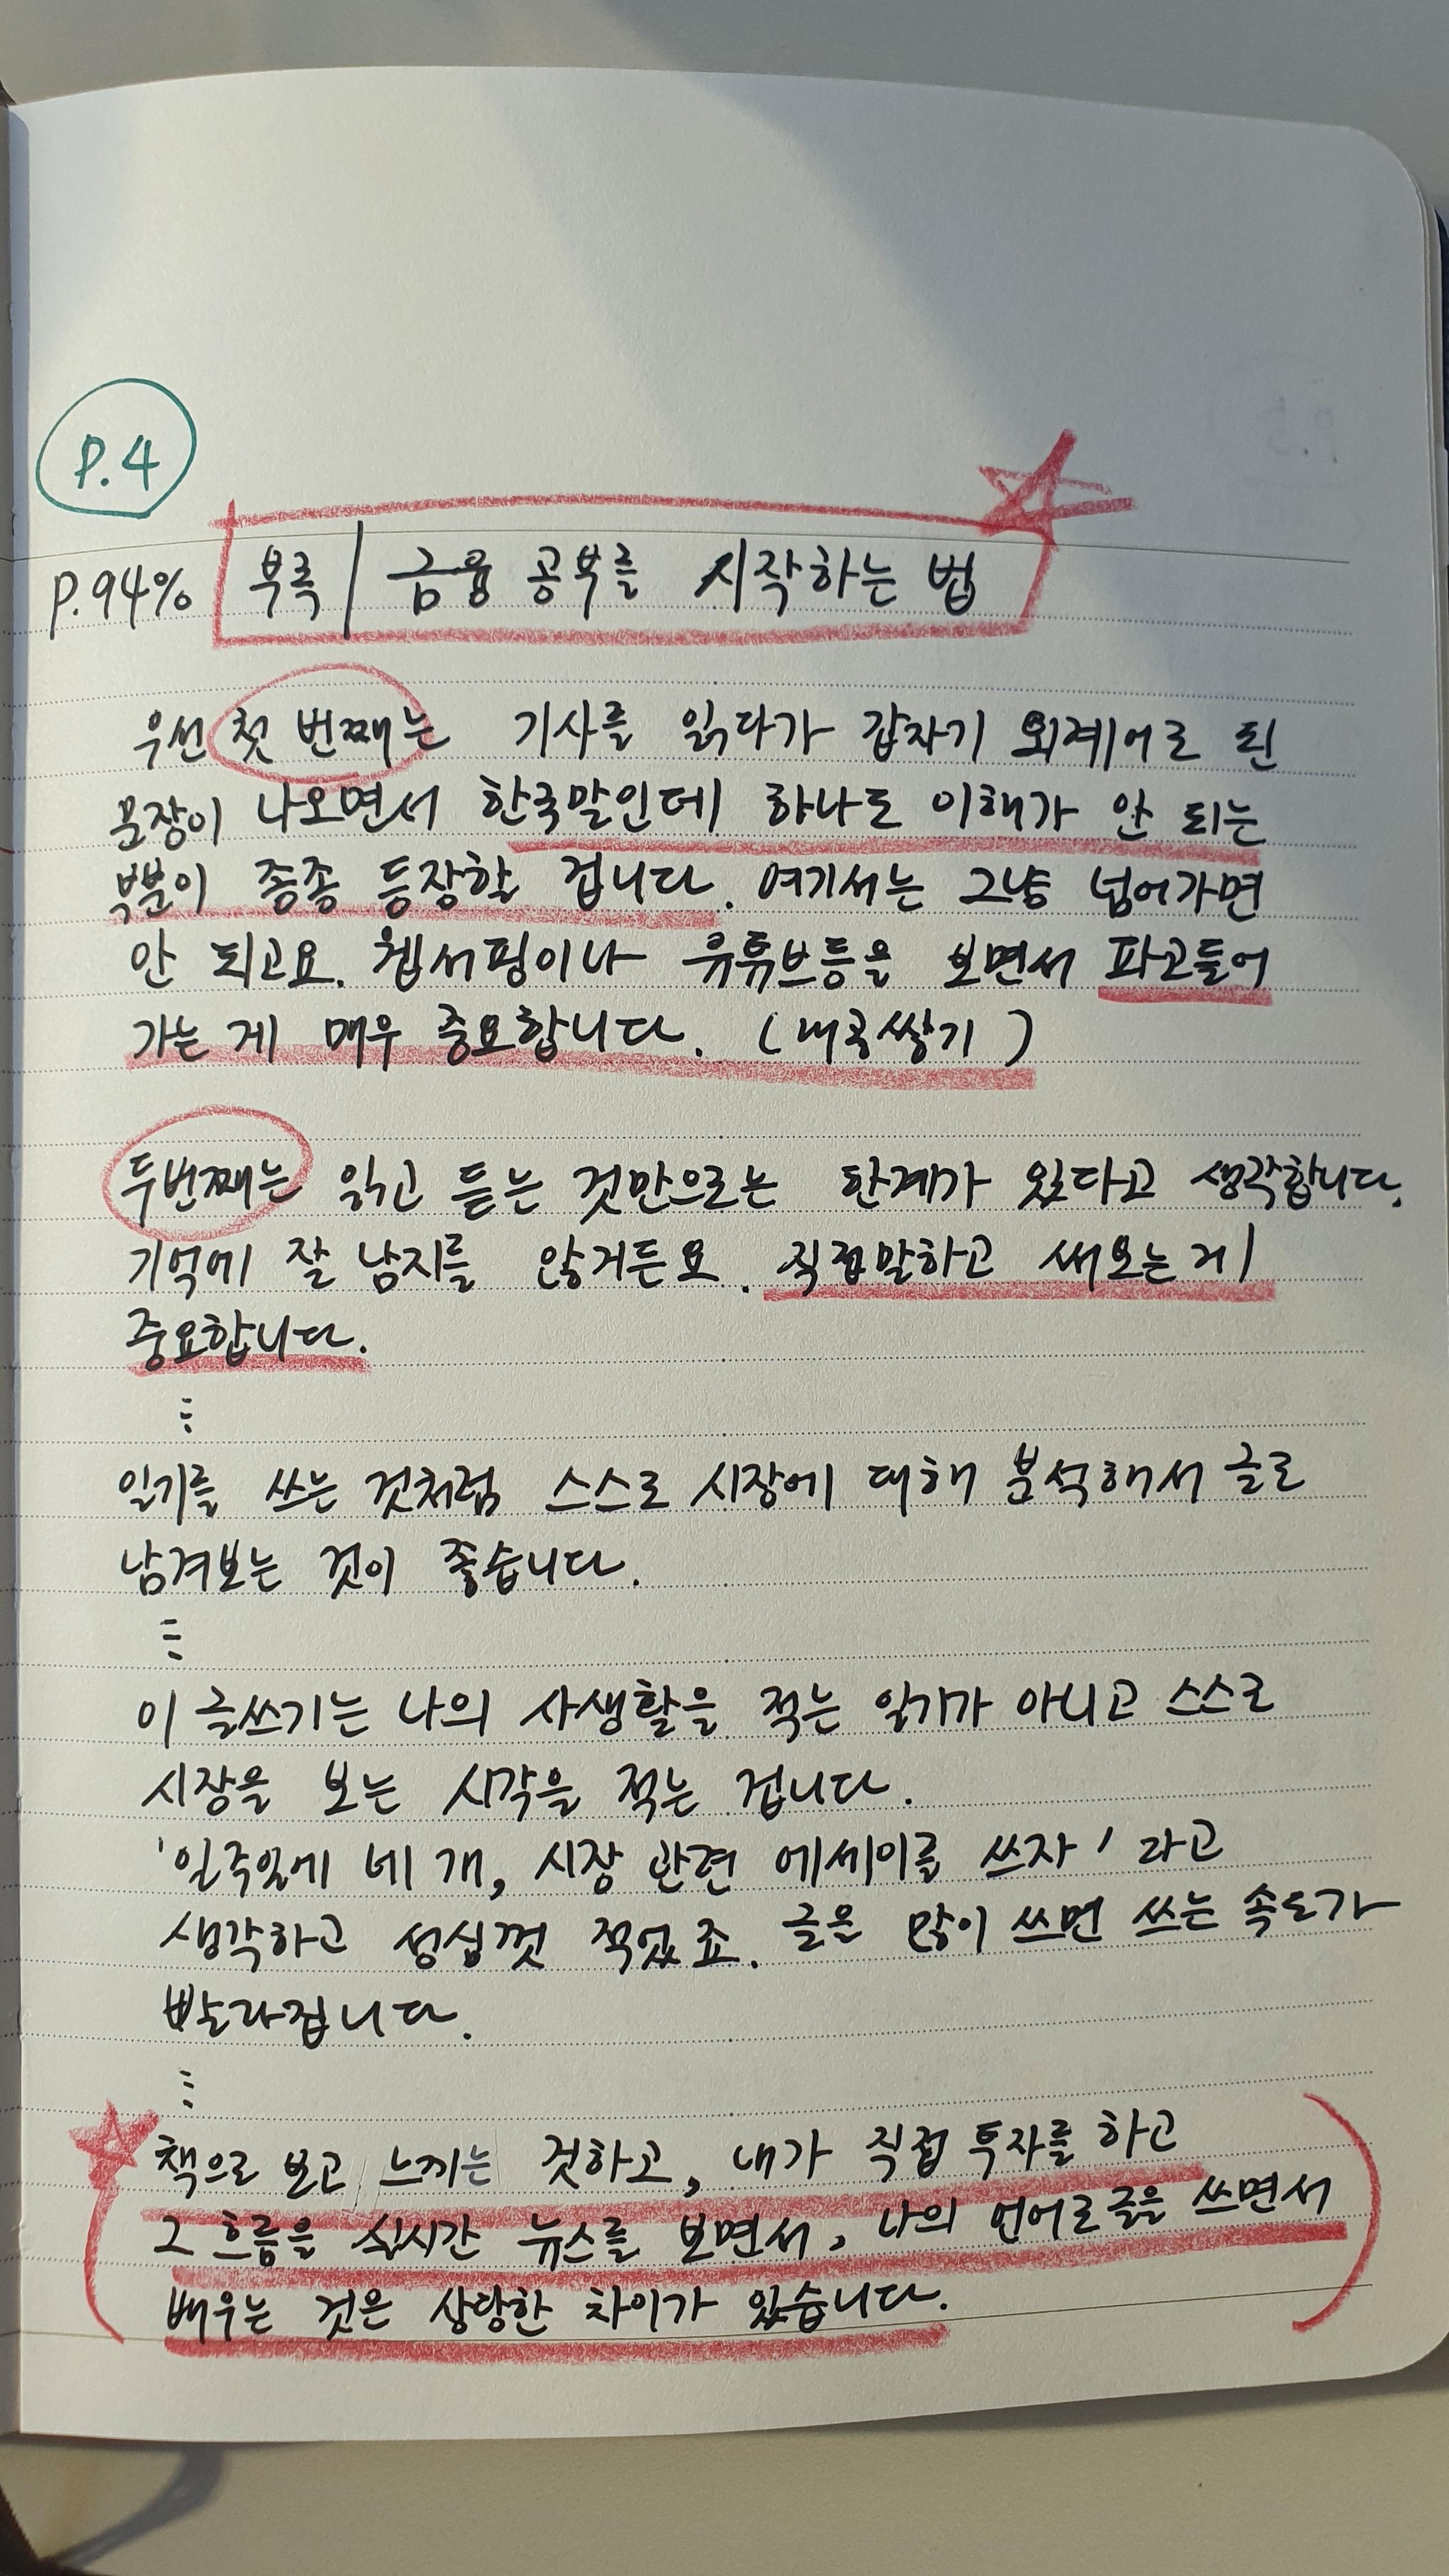 P.4
P.94% 부록 | 금융 공부를 시작하는 법
우선 첫 번째는 기사를 읽다가 갑자기 외계어로 된
문장이 나오면서 한국말인데 하나도 이해가 안 되는
부분이 종종 등장할 겁니다. 여기서는 그냥 넘어가면
안 되고요. 웹서핑이나 유튜브등을 보면서 파고들어
가는 게 매우 중요합니다. (내공쌓기)
두번째는 읽고 듣는 것만으로는 한계가 있다고 생각합니다.
기억에 잘 남지를 않거든요. 직접말하고 써보는게
중요합니다.
⋮
일기를 쓰는 것처럼 스스로 시장에 대해 분석해서 글로
남겨보는 것이 좋습니다.
⋮
이 글쓰기는 나의 사생활을 적는 일기가 아니고 스스로
시장을 보는 시각을 적는 겁니다.
'일주일에 네 개, 시장 관련 에세이를 쓰자' 라고
생각하고 성심껏 적었죠. 글을 많이 쓰면 쓰는 속도가
빨라집니다.
⋮
책으로 보고 느끼는 것하고, 내가 직접 투자를 하고
그 흐름을 실시간 뉴스를 보면서, 나의 언어로 글을 쓰면서
배우는 것은 상당한 차이가 있습니다.